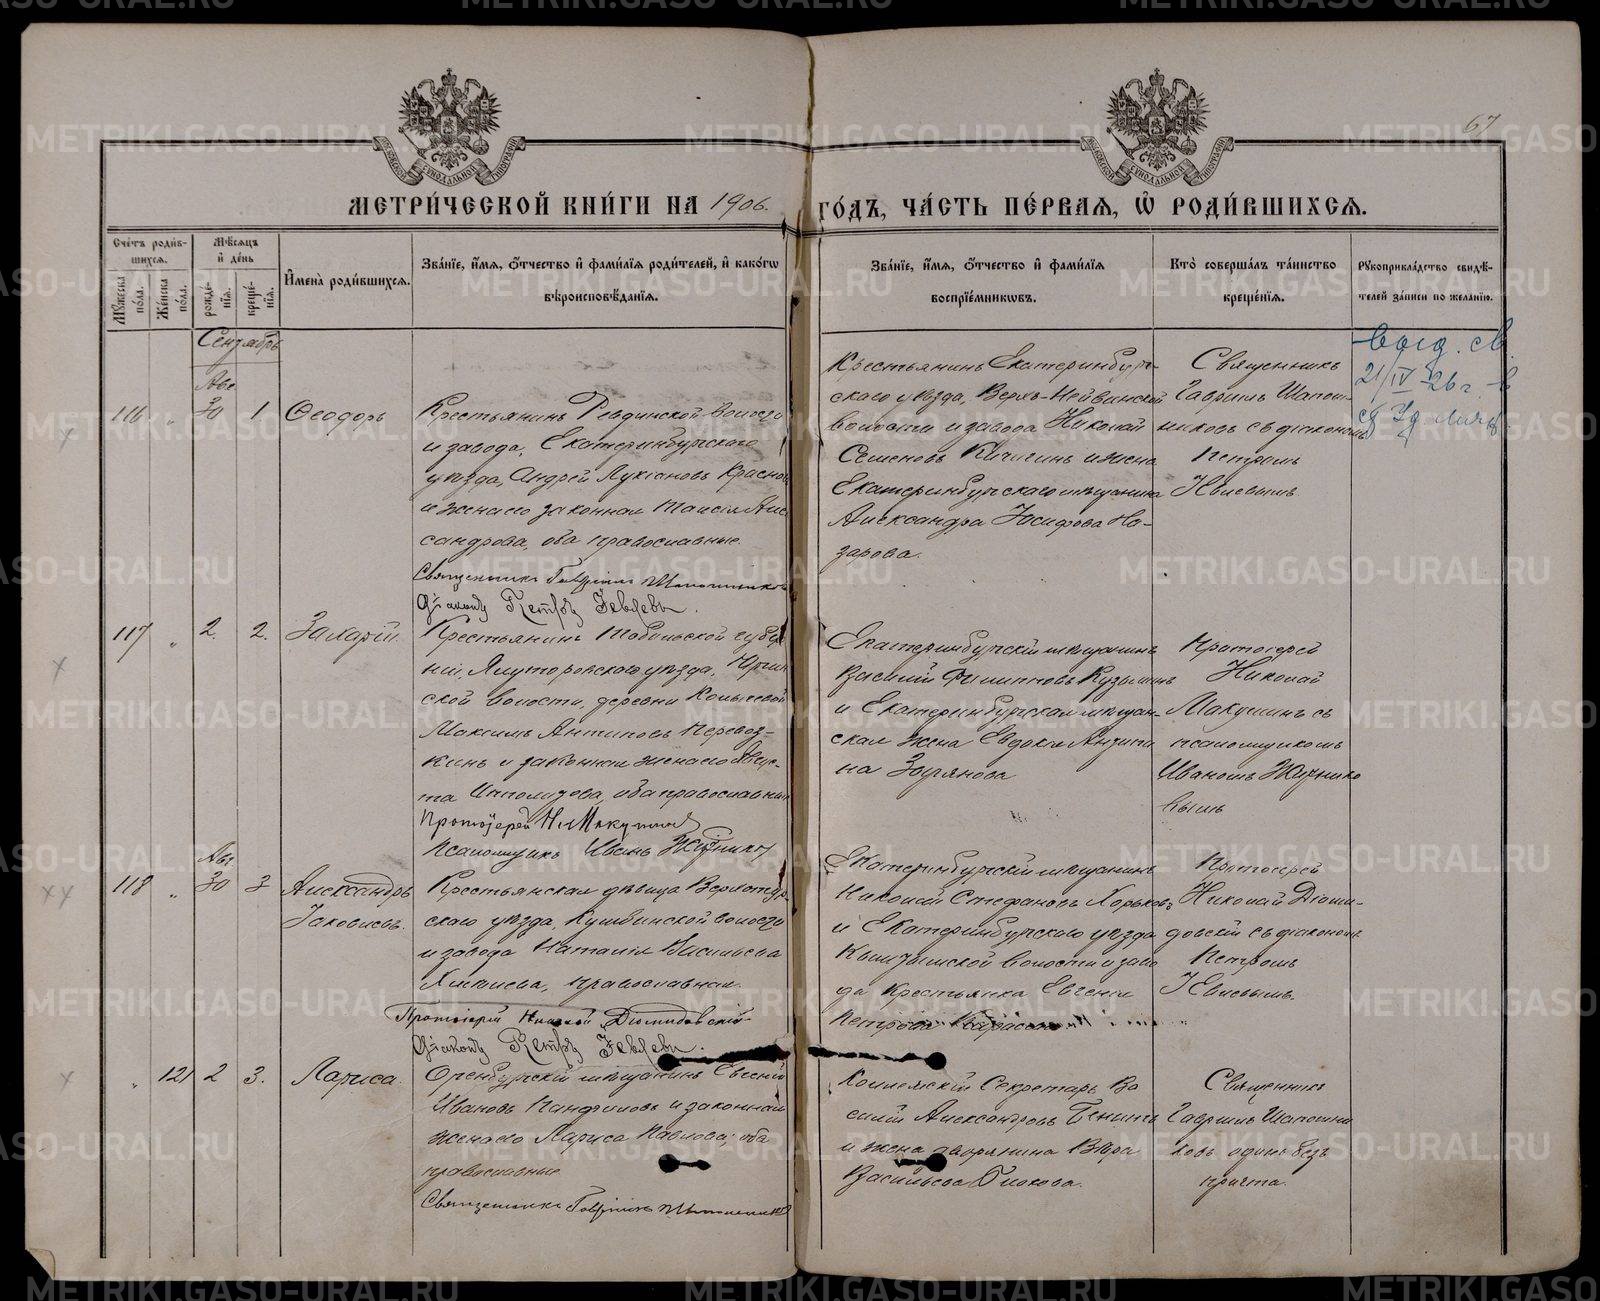 67
МЕТРИ́ЧЕСКОЙ КНИ́ГИ НА 1906.
ГО́ДЪ, ЧА́СТЬ ПЕ́РВАЯ, Ѡ҆ РОДИ́ВШИХСЯ.
Сче́тъ роди́в-
шихся.
Мꙋжеска по́ла.
Же́нска по́ла.
Мѣ́сяцъ
и҆ де́нь
рожде́-
нїя.
креще́-
нїя.
И҆мена̀ роди́вшихся.
Зва́нїе, и҆́мя, ѻ҆́тчество и҆ фами́лїя роди́телей, и҆ како́гѡ
вѣроисповѣ́данїя.
Зва́нїе, и҆́мя, ѻ҆́тчество и҆ фами́лїя
воспрїе́мникѡвъ.
Кто̀ соверша́лъ та́инство
креще́нїя.
Рꙋкоприкла́дство свидѣ́-
телей за́писи по жела́нїю.
Сентябрь
Авг
116 " 30 1 Ѳеодоръ
Крестьянинъ Ревдинской волости
и завода, Екатеринбургскаго
уѣзда, Андрей Лукіановъ
и жена его законная Таисія Алек
сандрова, оба православные.
Священникъ Гавріилъ Шапошниковъ
Діаконъ Петръ Іевлевъ.
Крестьянинъ Екатеринбург-
скаго уѣзда, Верхъ-Нейвинской
волости и завода Николай
Семеновъ Кичигинъ и жена
Екатеринбургскаго мѣщанина
Александра Іосифова На-
зарова.
Священникъ
Гавріилъ Шапош-
никовъ съ діакономъ
Петромъ
Іевлевымъ
выд. св.
21/IV 26 г.
117 " 2. 2. Захарій.
Крестьянинъ Тобольской губер
ніи, Ялуторовскаго уѣзда,
ской волости, деревни
Максимъ Антиповъ Перевоз-
кинъ и законная жена его Авгус-
та Ипполитова, оба православные
Протоіерей Н. Макушинъ
Псаломщикъ Иванъ
Екатеринбургскій мѣщанинъ
Василій Филипповъ Кузьминъ
и Екатеринбургская мѣщан-
ская жена Евдокія
на
Протоіерей
Николай
Макушинъ съ
псаломщикомъ
Иваномъ
вымъ
Авг
118 " 30 3 Александръ
Іаковлевъ.
Крестьянская дѣвица Верхотур-
скаго уѣзда, Кушвинской волости
и завода Наталія Васильева
православная.
Протоіерей Николай Діомидовскій
Діаконъ Петръ Іевлевъ.
Екатеринбургскій мѣщанинъ
Николай Стефановъ Хорьковъ
и Екатеринбургскаго уѣзда
Кыштымской волости и заво
да крестьянка Евгенія
Петрова
Протоіерей
Николай Діоми-
довскій съ діакономъ
Петромъ
Іевлевымъ.
" 121 2 3. Лариса.
Оренбургскій мѣщанинъ Евгеній
Ивановъ Панфиловъ и законная
жена его Лариса Павлова, оба
православные
Священникъ Гавріилъ Шапошниковъ
Коллежскій Секретарь Ва
силій Александровъ
и жена дворянина Вѣра
Васильева
Священникъ
Гавріилъ Шапошни
ковъ одинъ безъ
причта.